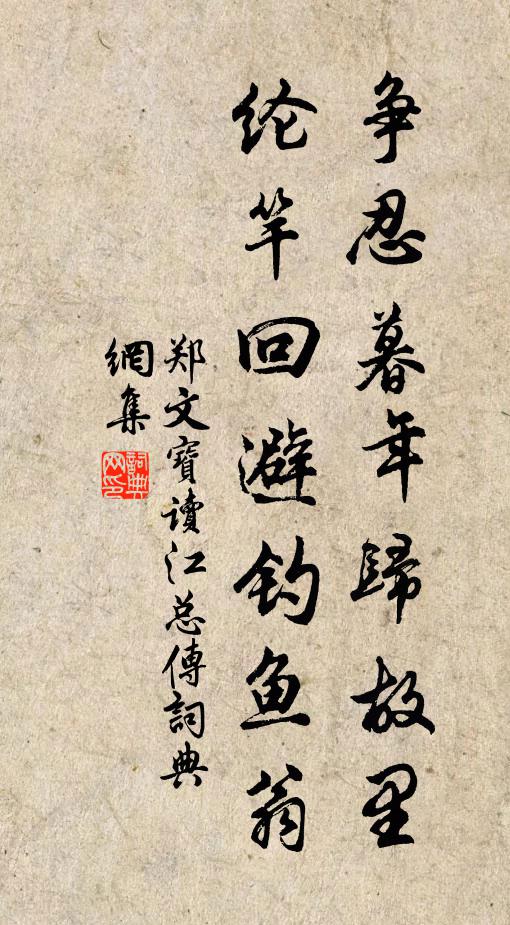 争忍暮年歸故里
纶竿回避钓鱼翁
郑文寶读江总傳詞典
網集
詞典
网印